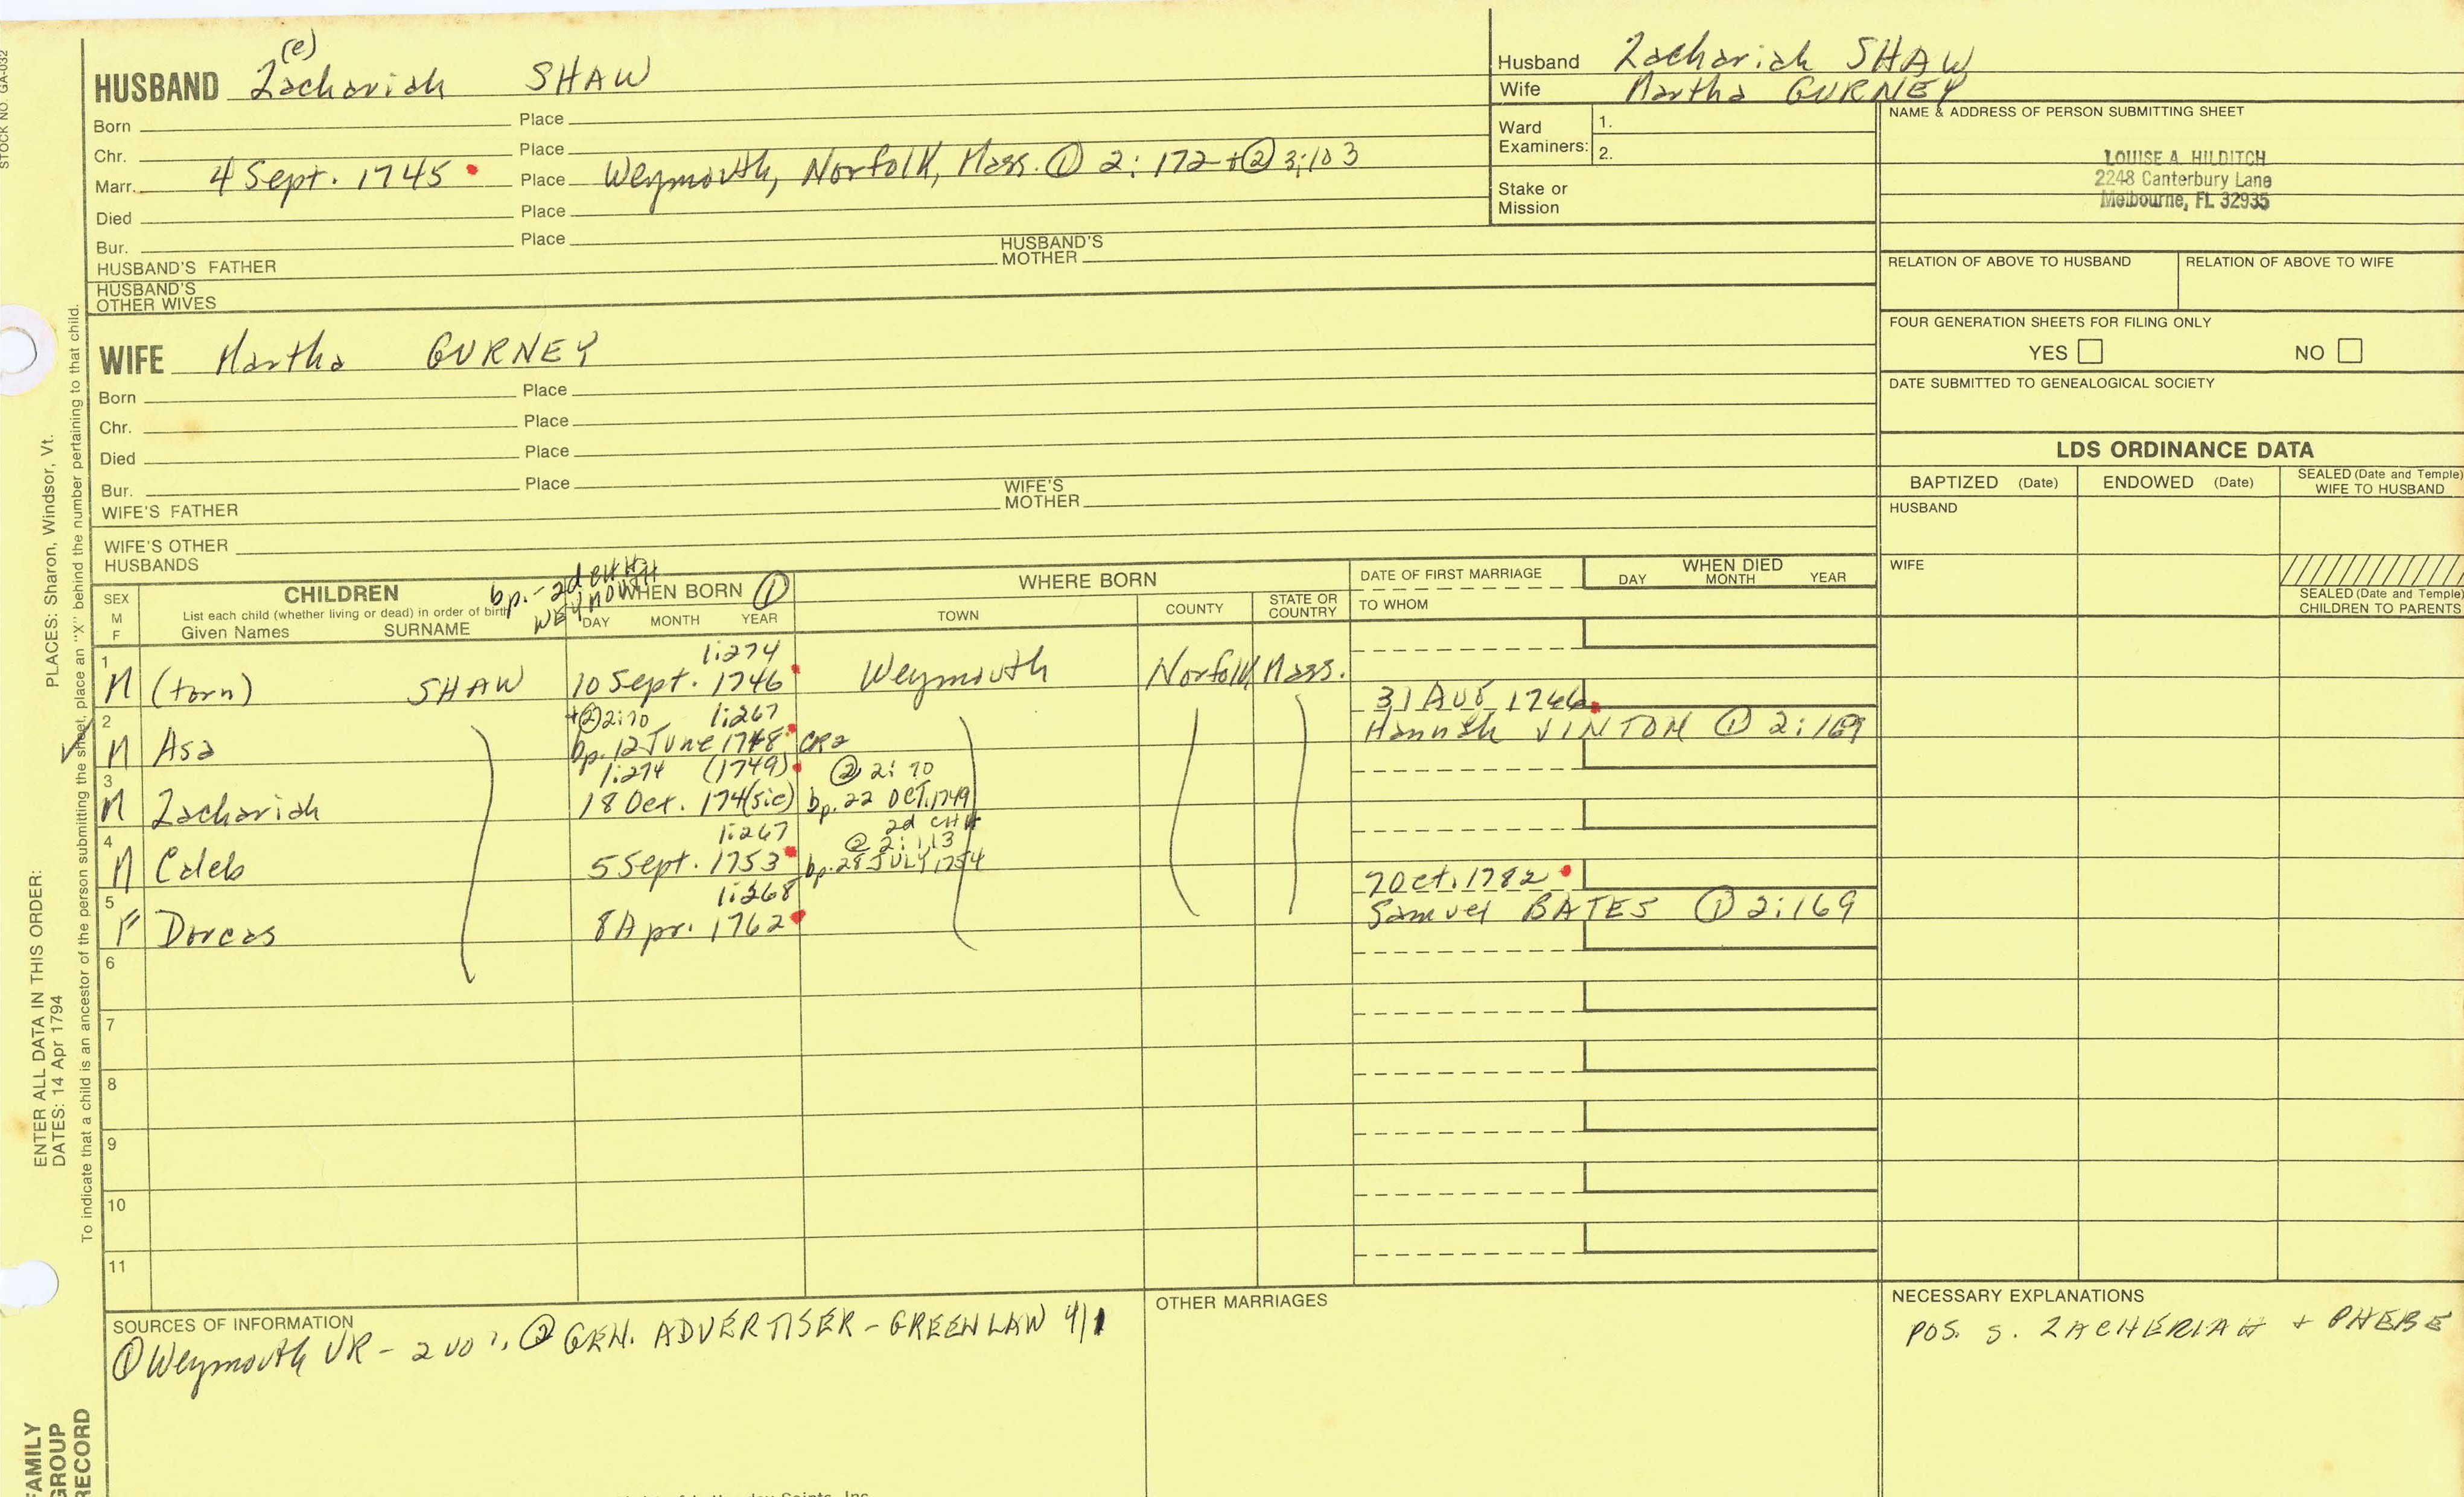 STOCK NO. GA-032
(e)
HUSBAND Zachariah SHAW
Born Place
Chr. Place
Marr. 4 Sept. 1745 Place Weymouth, Norfolk, Mass. ① 2:172 + ② 3:103
Died Place
Bur. Place
HUSBAND'S FATHER HUSBAND'S MOTHER
HUSBAND'S OTHER WIVES
Husband Zachariah SHAW
Wife Martha GURNEY
Ward Examiners: 1.
2.
Stake or Mission
NAME & ADDRESS OF PERSON SUBMITTING SHEET
LOUISE A. HILDITCH
2248 Canterbury Lane
Melbourne, FL 32935
RELATION OF ABOVE TO HUSBAND RELATION OF ABOVE TO WIFE
FOUR GENERATION SHEETS FOR FILING ONLY
YES NO
DATE SUBMITTED TO GENEALOGICAL SOCIETY
WIFE Martha GURNEY
Born Place
Chr. Place
Died Place
Bur. Place
WIFE'S FATHER WIFE'S MOTHER
WIFE'S OTHER HUSBANDS
LDS ORDINANCE DATA
BAPTIZED (Date) ENDOWED (Date) SEALED (Date and Temple) WIFE TO HUSBAND
HUSBAND
WIFE
SEALED (Date and Temple) CHILDREN TO PARENTS
bp. - 2d CHH
WEYMOUTH
SEX M F
CHILDREN
List each child (whether living or dead) in order of birth
Given Names SURNAME
WHEN BORN ①
DAY MONTH YEAR
WHERE BORN
TOWN COUNTY STATE OR COUNTRY
DATE OF FIRST MARRIAGE
TO WHOM
WHEN DIED
DAY MONTH YEAR
1:274
1 M (torn) SHAW 10 Sept. 1746 Weymouth Norfolk Mass.
+② 2:70 1:267 31 AUG 1766
2 M Asa bp. 12 June 1748 CR2 Hannah VINTON ① 2:169
1:274 (1749) @ 2:70
3 M Zachariah 18 Oct. 174(sic) bp. 22 OCT. 1749
2d CHH
1:267 @ 2:113
4 M Caleb 5 Sept. 1753 bp. 28 JULY 1754
1:268 7 Oct. 1782
5 F Dorcas 8 Apr. 1762 Samuel BATES ① 2:169
6
7
8
9
10
11
SOURCES OF INFORMATION
① Weymouth VR - 2 vol., ② GEN. ADVERTISER - GREENLAW 4/1
OTHER MARRIAGES
NECESSARY EXPLANATIONS
POS. S. ZACHERIAH + PHEBE
PLACES: Sharon, Windsor, Vt.
ENTER ALL DATA IN THIS ORDER:
DATES: 14 Apr 1794
To indicate that a child is an ancestor of the person submitting the sheet, place an "X" behind the number pertaining to that child.
FAMILY GROUP RECORD